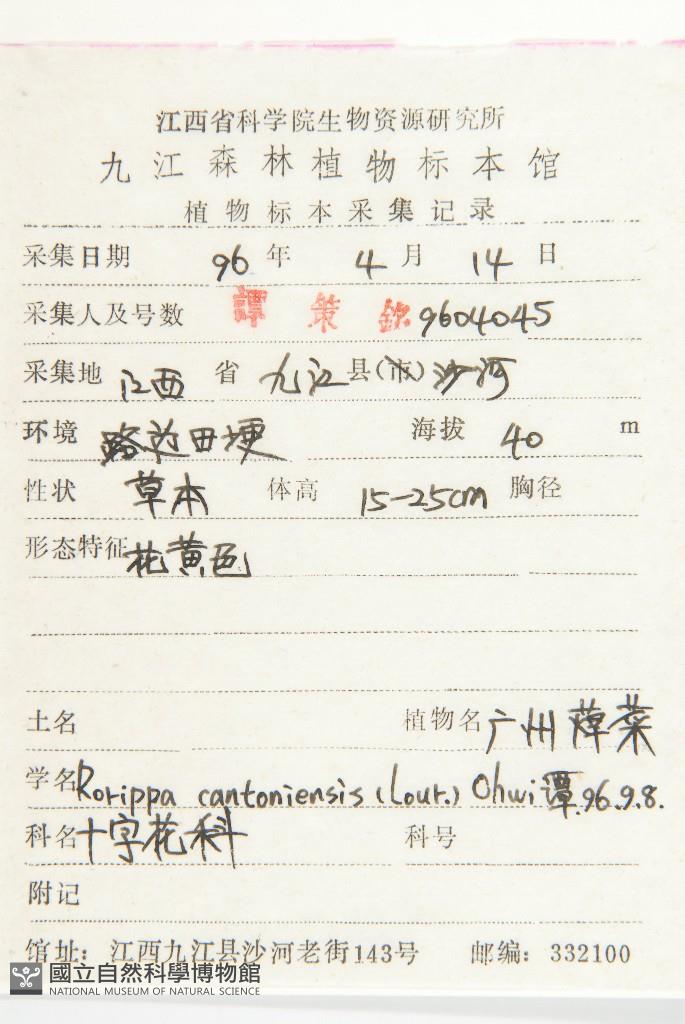 江西省科学院生物资源研究所
九江森林植物标本馆
植物标本采集记录
采集日期 96 年 4 月 14 日
采集人及号数 譚策銘 9604045
采集地 江西 省 九江 县(市) 沙河
环境 路边田埂 海拔 40 m
性状 草本 体高 15-25cm 胸径
形态特征 花黄色
土名 植物名 广州蔊菜
学名 Rorippa cantoniensis (Lour.) Ohwi 谭.96.9.8.
科名 十字花科 科号
附记
馆址：江西九江县沙河老街143号 邮编：332100
國立自然科學博物館
NATIONAL MUSEUM OF NATURAL SCIENCE